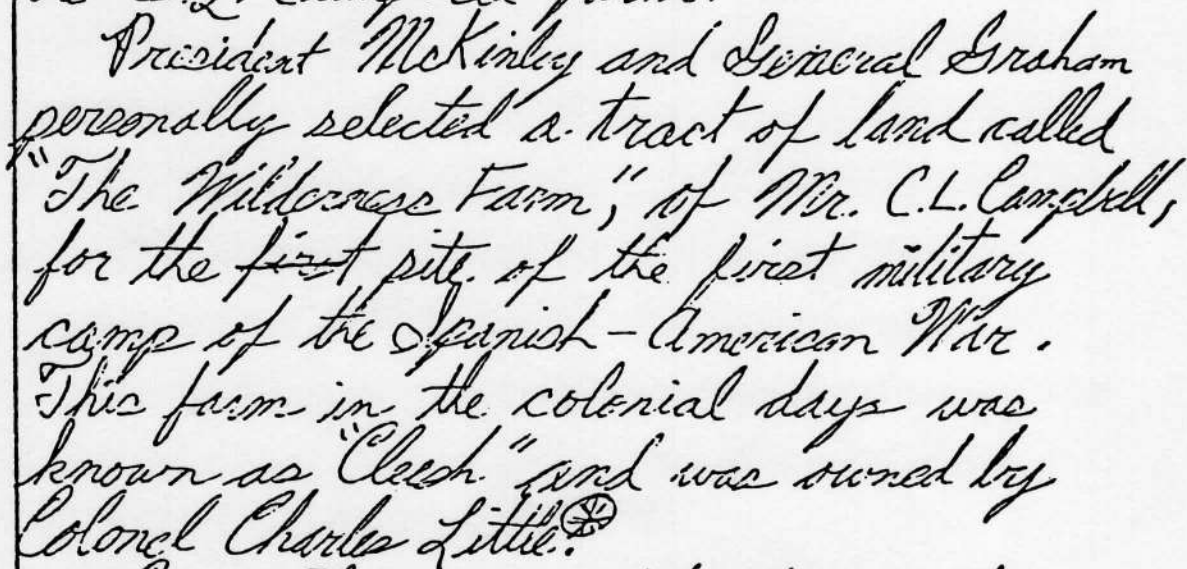 President McKinley and General Graham
personally selected a tract of land called
"The Wilderness Farm", of Mr. C.L. Campbell,
for the first site of the first military
camp of the Spanish-American War.
This farm in the colonial days was
known as "Cleesh" and was owned by
Colonel Charles Little.